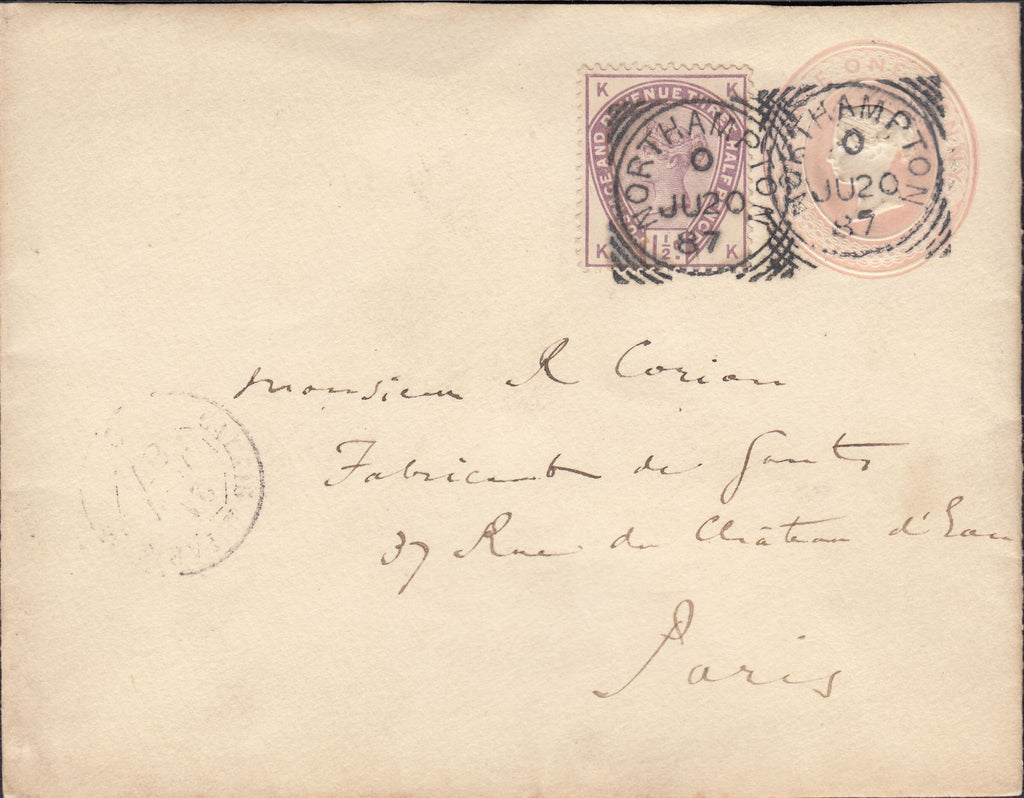 ONE
K K
POSTAGE AND REVENUE THREE HALF PENCE
K 1½ᴰ. K
NORTHAMPTON
O
JU 20
87
NORTHAMPTON
O
JU 20
87
Monsieur R Corian
Fabricant de Gants
37 Rue du Château d'Eau
Paris